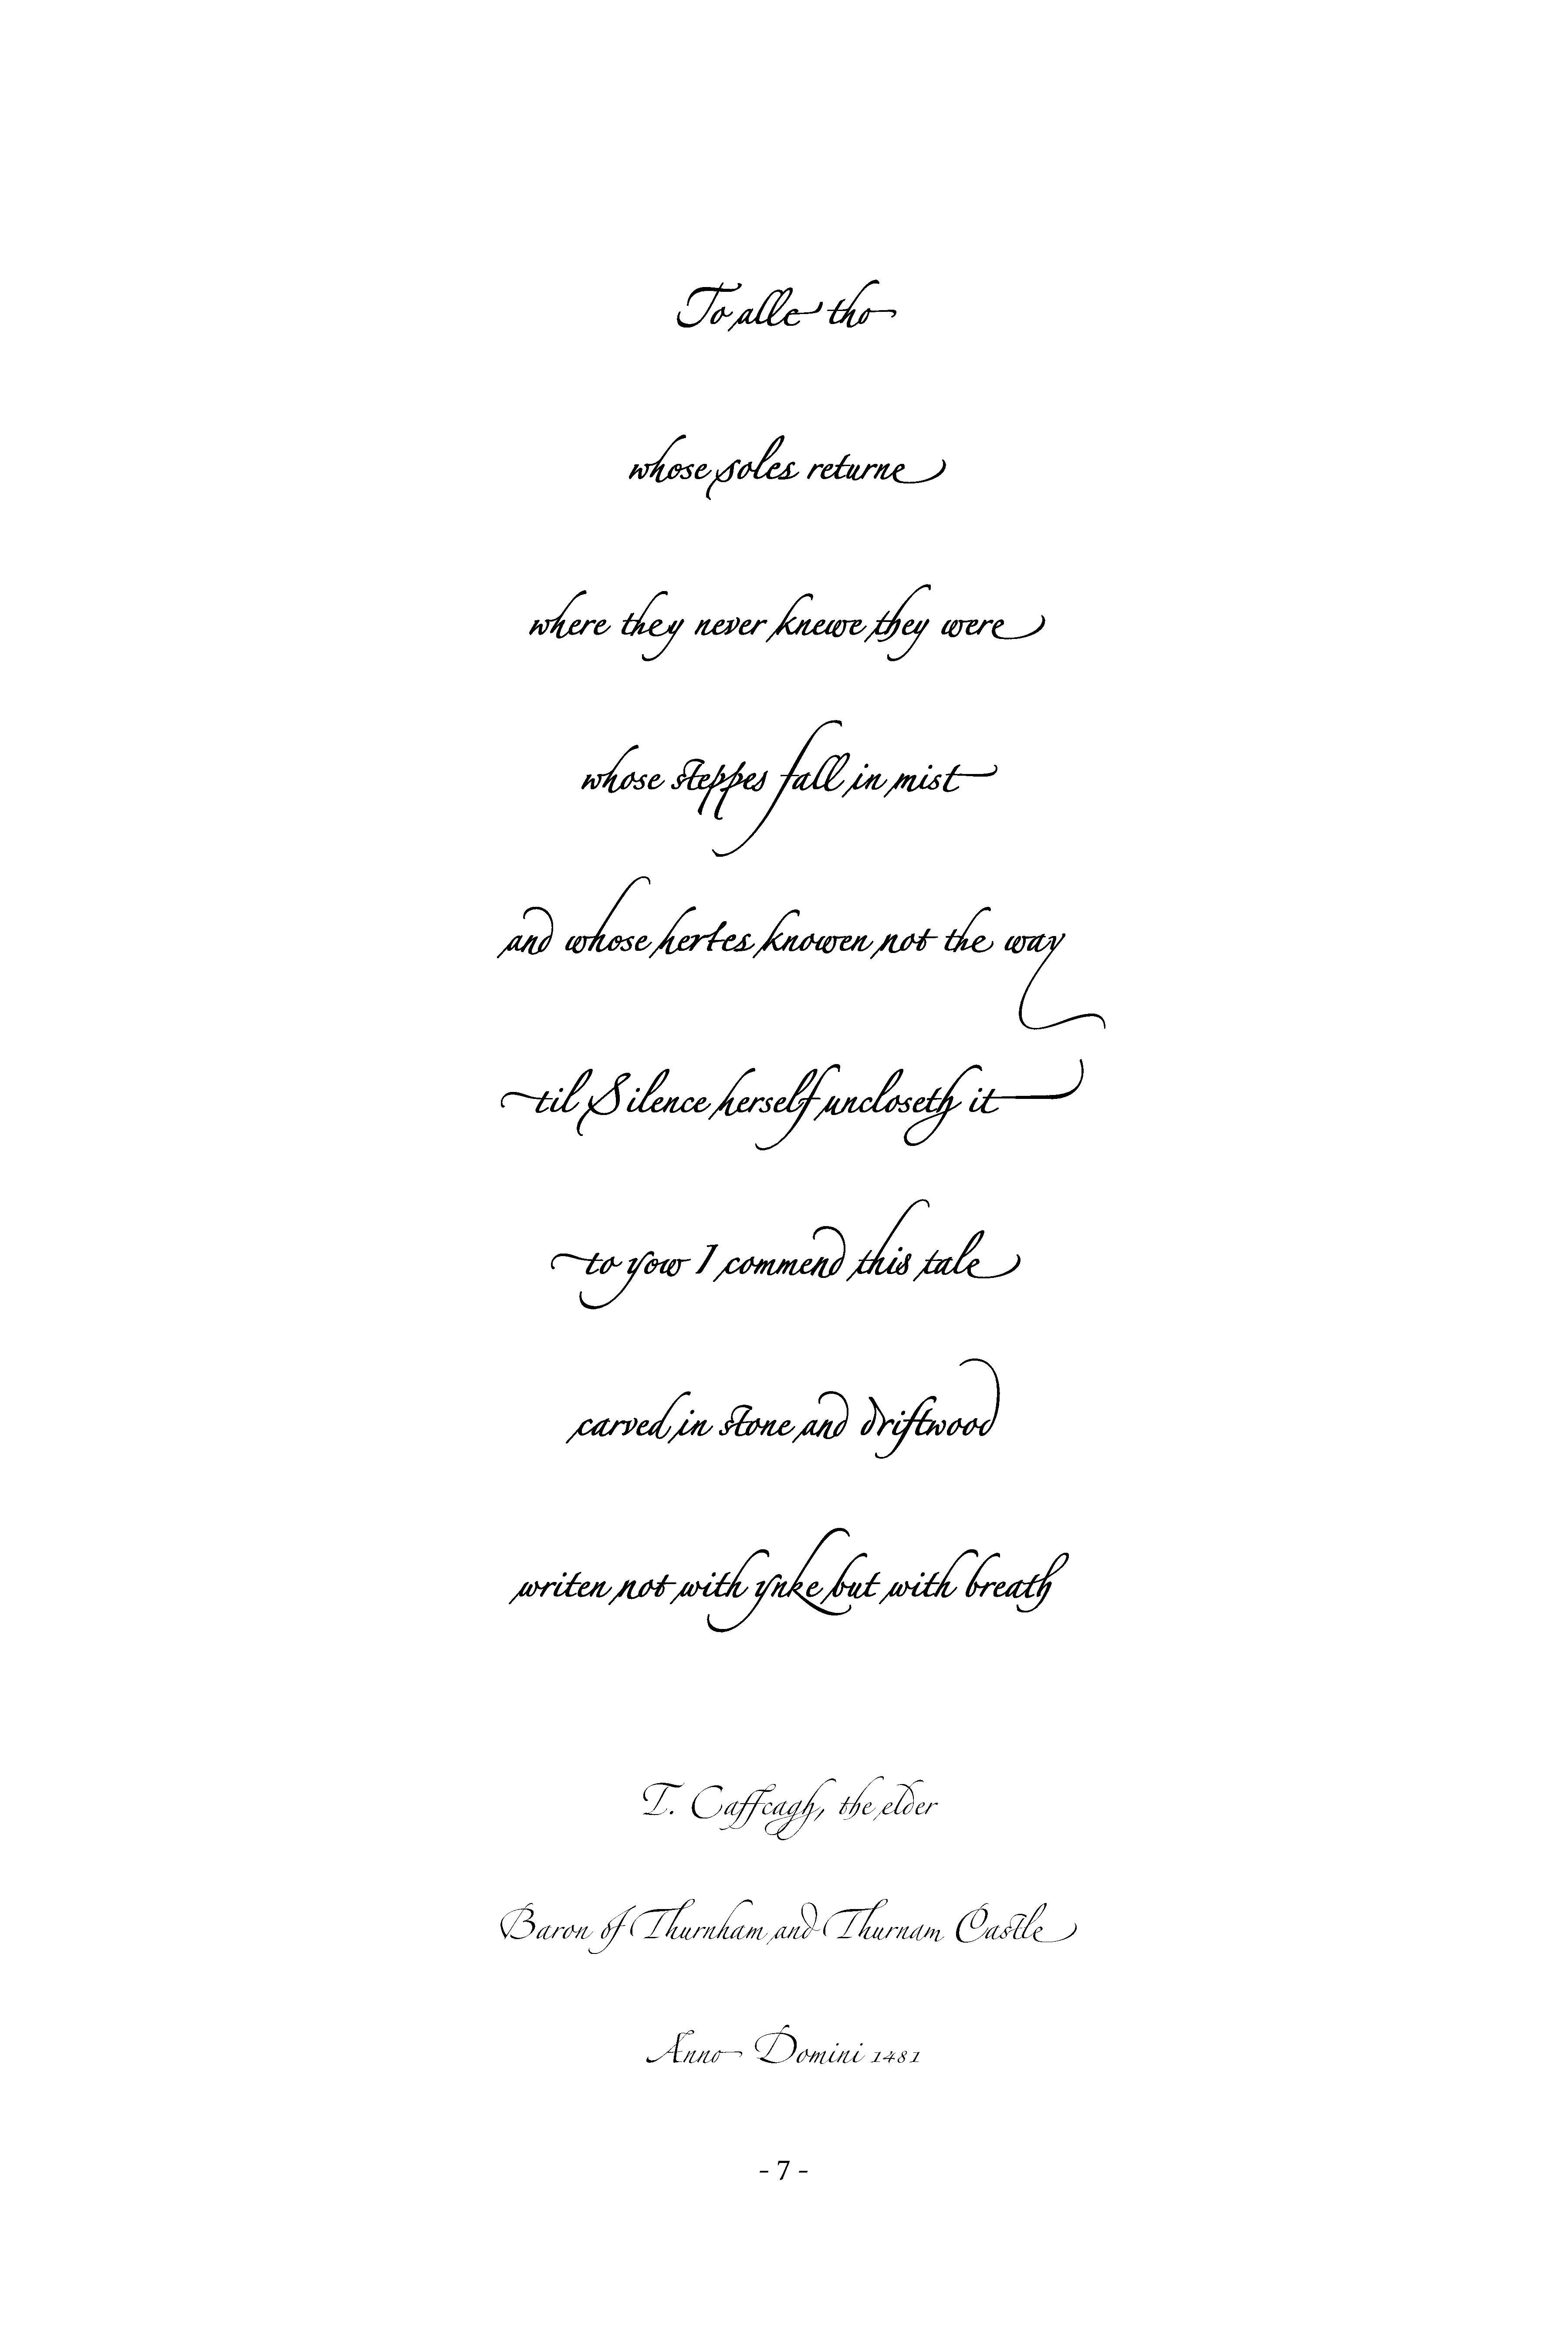 To alle tho
whose soles returne
where they never knewe they were
whose steppes fall in mist
and whose hertes knowen not the way
til Silence herself uncloseth it
to yow I commend this tale
carved in stone and driftwood
writen not with ynke but with breath
T. Caffcagh, the elder
Baron of Thurnham and Thurnam Castle
Anno Domini 1481
- 7 -